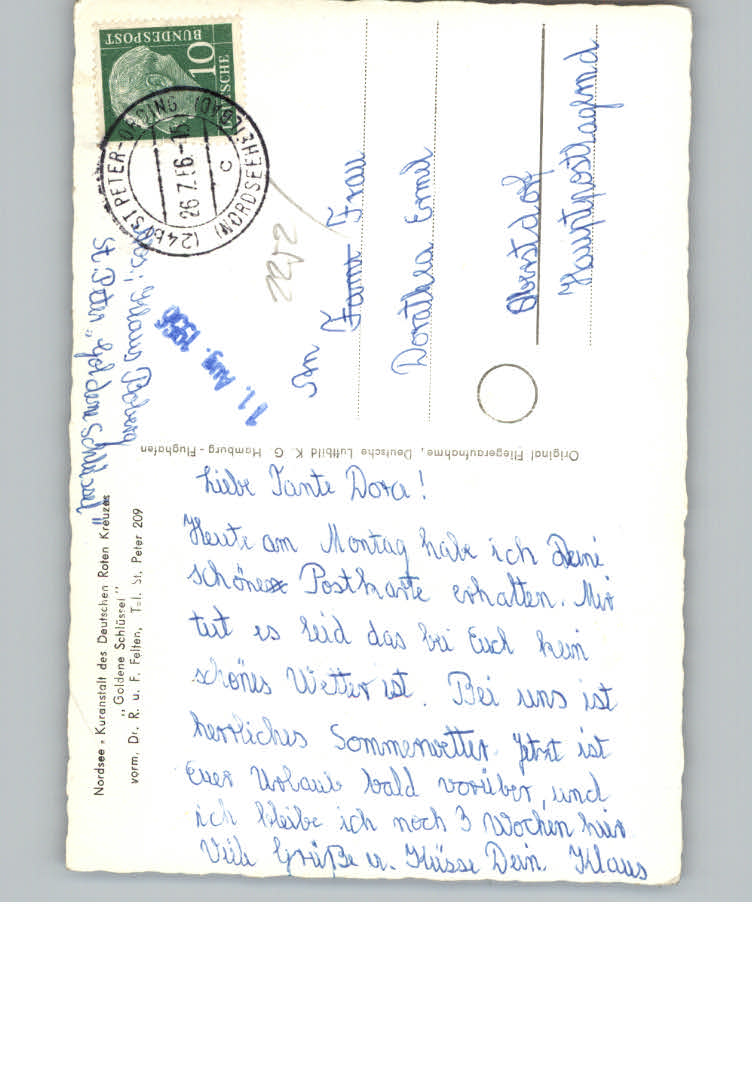 Liebe Tante Dora!
Heute am Montag habe ich Deine
schöne Postkarte erhalten. Mir
tut es leid das bei Euch kein
schönes Wetter ist. Bei uns ist
herrliches Sommerwetter. Jetzt ist
Euer Urlaub bald vorüber, und
ich bleibe ich noch 3 Wochen hier
Viele Grüße u. Küsse Dein Klaus
An
Frau
Dorothea Ermel
Oberstdorf
Hauptpostlagernd
Abs.: Klaus
St. Peter „Goldene Schlüssel"
Nordsee-Kuranstalt des Deutschen Roten Kreuzes
„Goldene Schlüssel"
vorm. Dr. R. u. F. Felten, Tel. St. Peter 209
Original Fliegeraufnahme, Deutsche Luftbild K. G. Hamburg-Flughafen
DEUTSCHE
BUNDESPOST
10
(24b) ST PETER-ORDING (BAD)
26.7.56.-15
c
(NORDSEEHEILBAD)
11. Aug. 1956